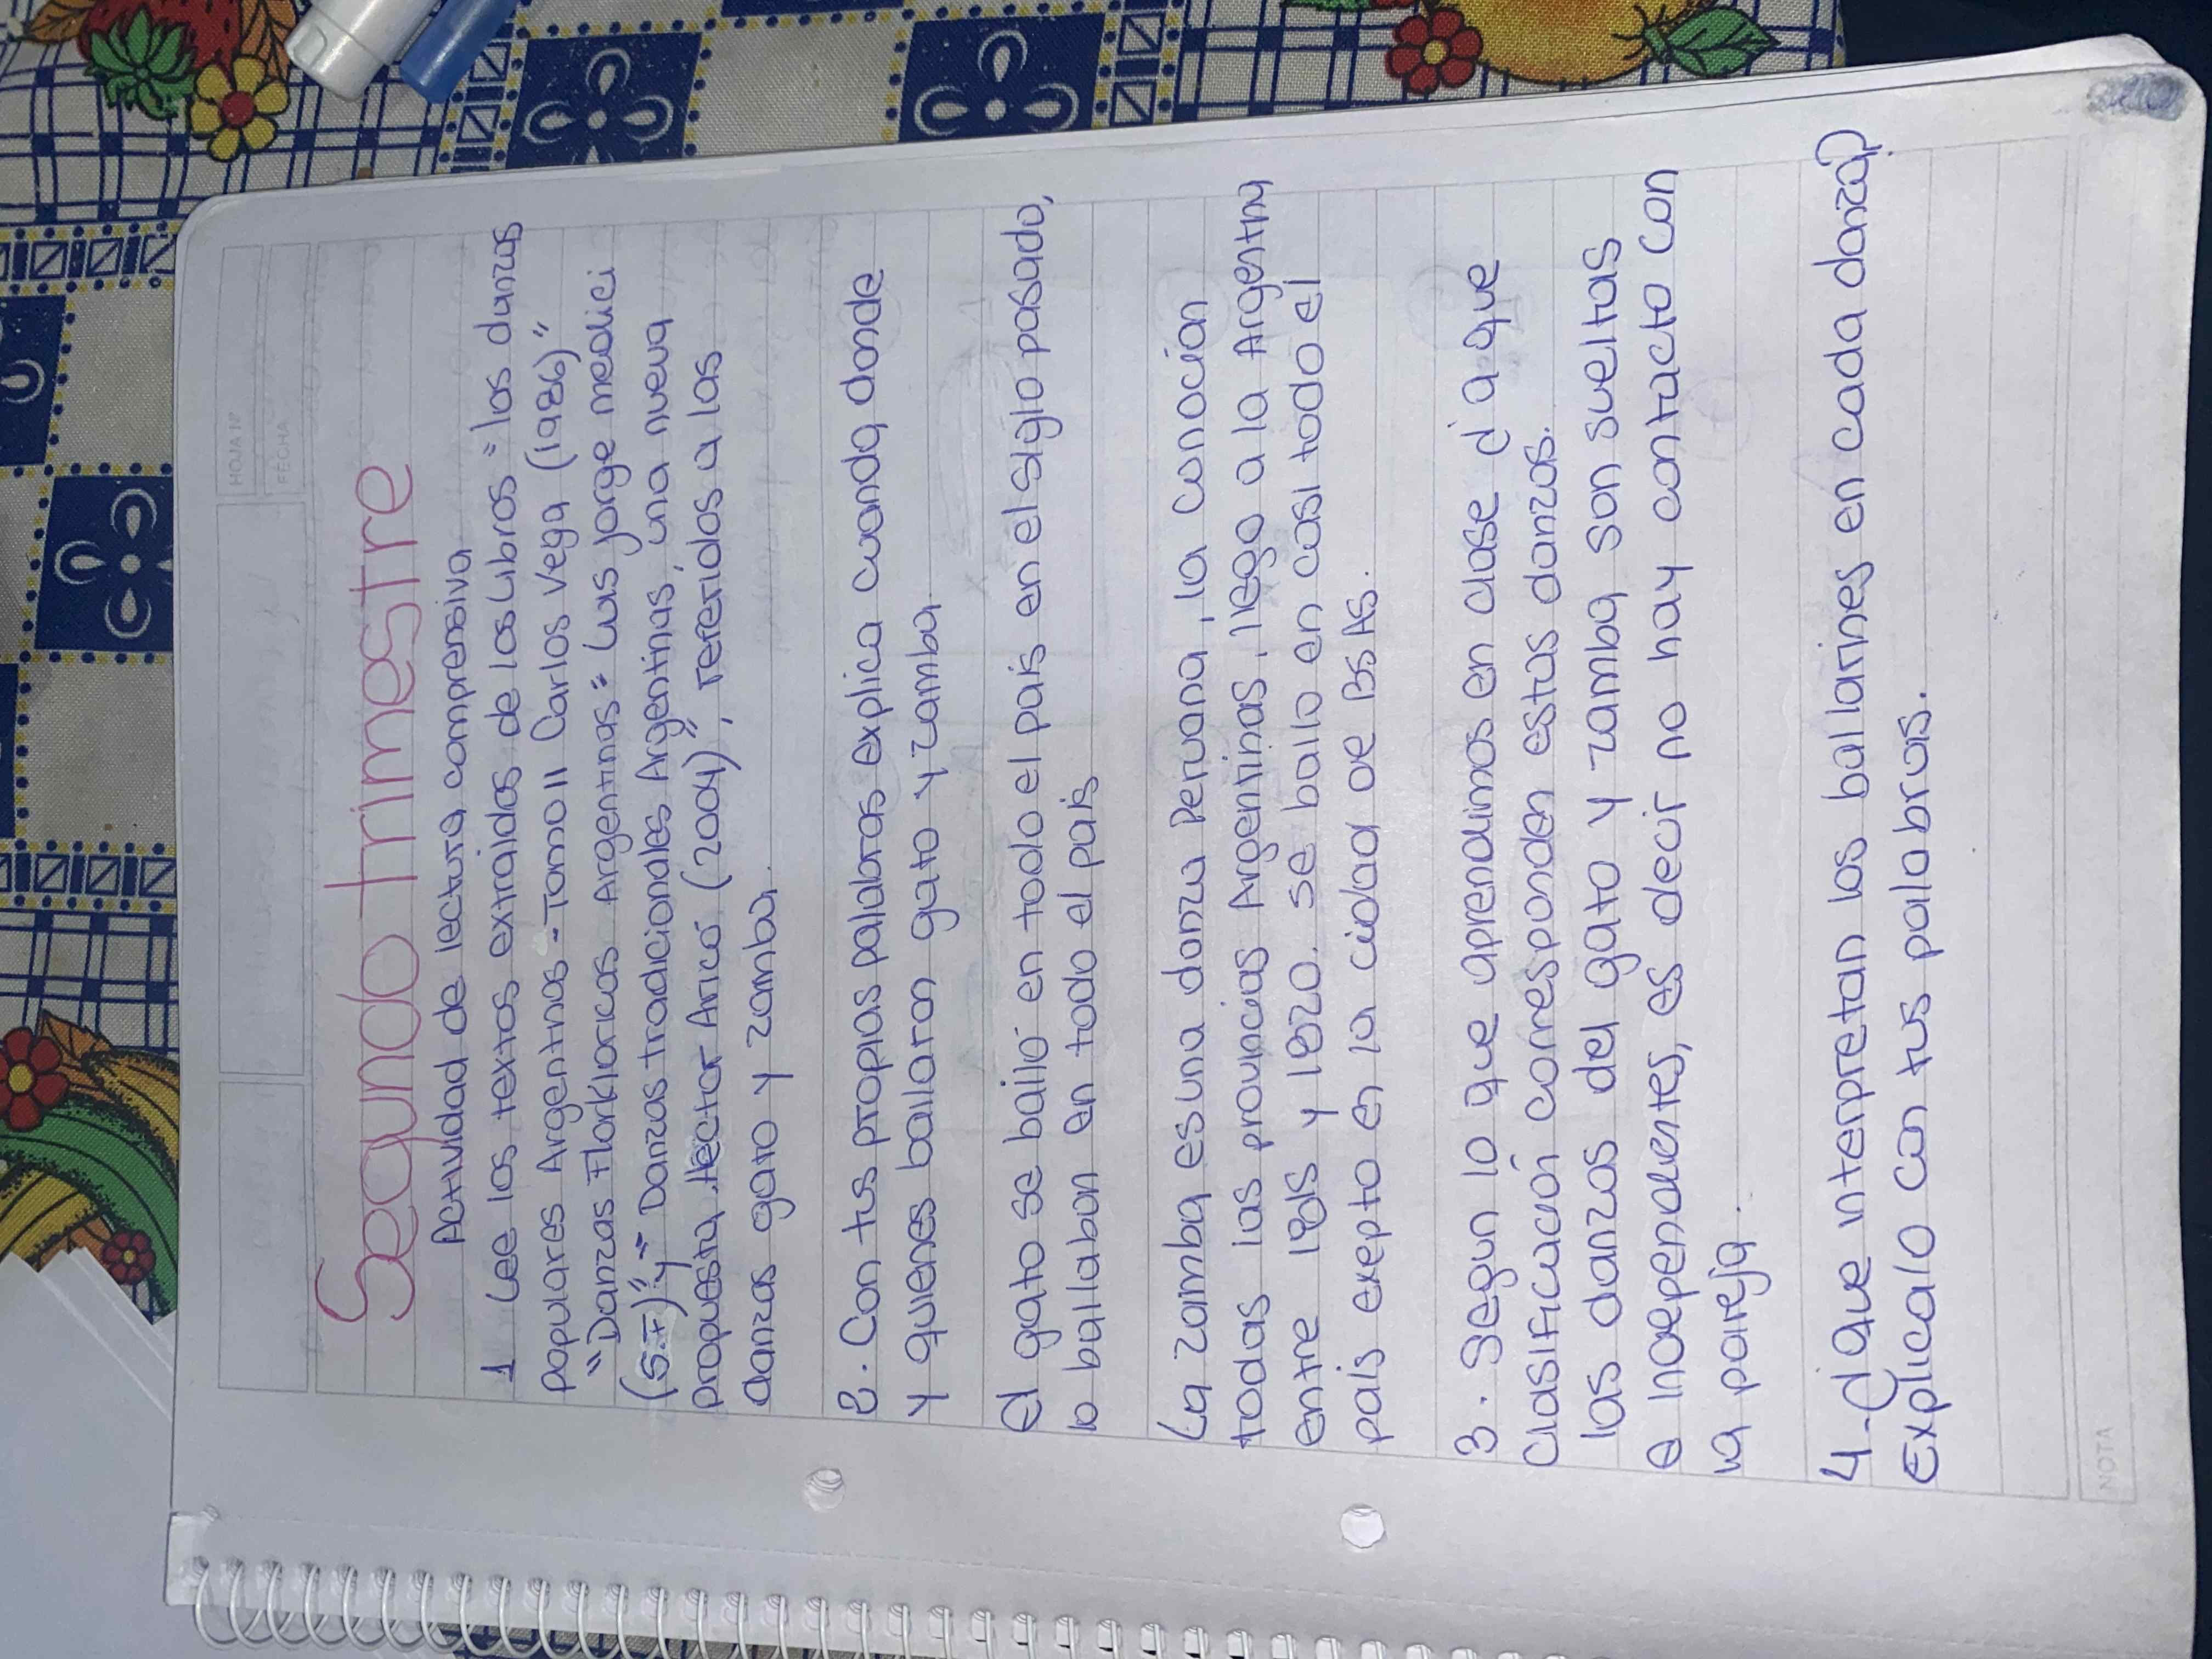 HOJA Nº
FECHA
Segundo trimestre
Actividad de lectura comprensiva
1 Lee los textos extraidos de los Libros "las danzas
populares Argentinas - Tomo II Carlos Vega (1986)"
"Danzas Florkloricas Argentinas" Luis Jorge medici
(S.F)" y " Danzas tradicionales Argentinas, una nueva
propuesta. Hector Aricó (2004)", referidos a las
danzas gato y zamba.
2. Con tus propias palabras explica cuando, donde
y quienes bailaron gato y zamba
El gato se bailó en todo el país en el siglo pasado,
lo bailaban en todo el pais
La zamba es una danza Peruana, la conocian
todas las provincias Argentinas, llego a la Argentina
entre 1815 y 1820. se bailo en casi todo el
país exepto en la ciudad de Bs As.
3. Segun lo que aprendimos en clase ¿ a que
Clasificación corresponden estas danzas.
las danzas del gato y zamba son sueltas
e independientes, es decir no hay contacto con
la pareja.
4-¿ que interpretan los bailarines en cada danza?
Explicalo con tus palabras.
NOTA